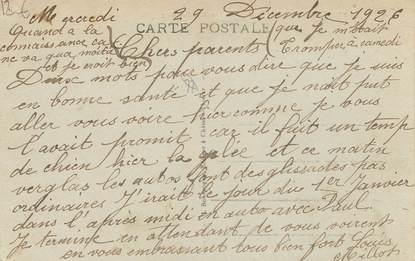 Mercredi 29 Decembre 1926
CARTE POSTALE
Quand a la
connaissance ca
ne va qua moitié
et je croit bien
que je métait
tromper a samedi
Chers parents
Deux mots pour vous dire que je suis
en bonne santé et que je nait put
aller vous voire hier comme je vous
l'avait promit car il fait un temps
de chien hier la gelée et ce matin
verglas les autos font des glissades pas
ordinaires J'irait le jour du 1er Janvier
dans l'après midi en auto avec Paul
Je termine en attendant de vous voirent
en vous embrassant tous bien fort Louis
Millot